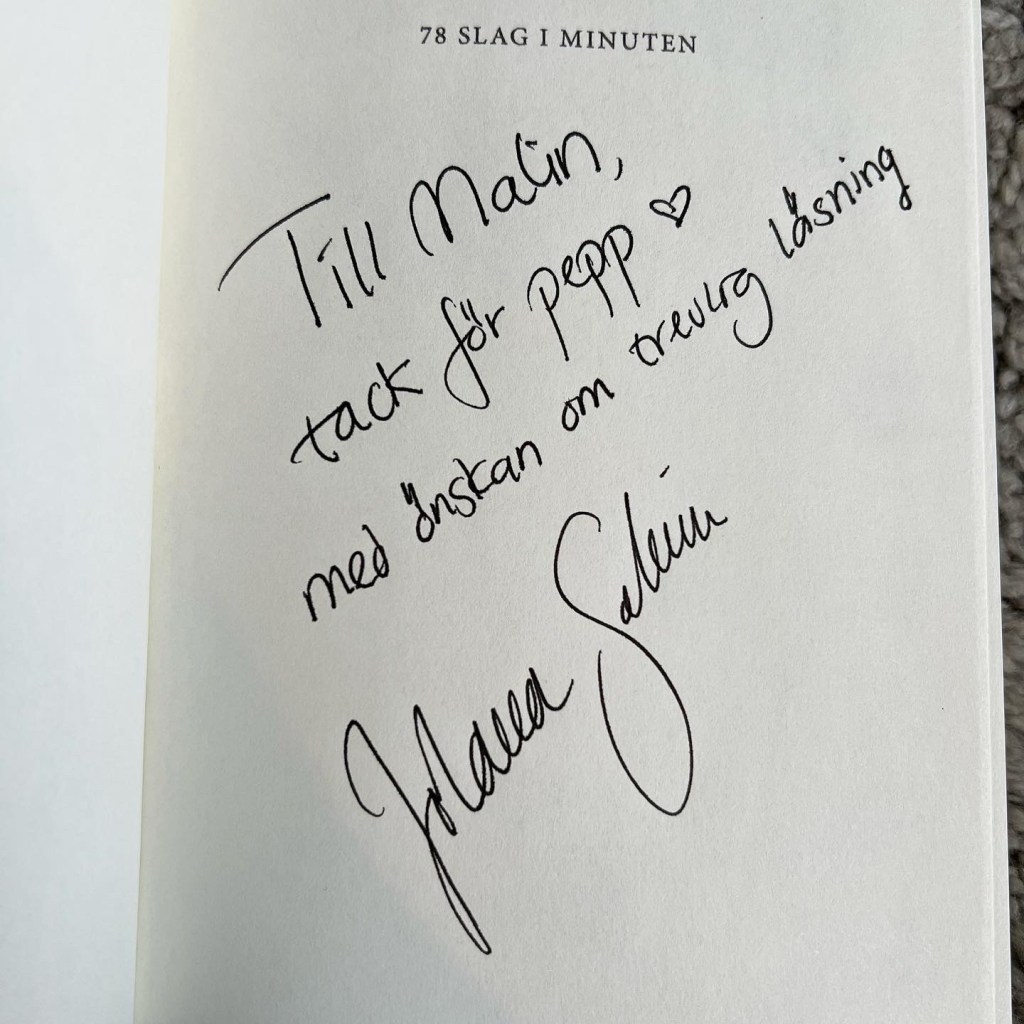 78 SLAG I MINUTEN
Till Malin,
tack för pepp ♡
med önskan om trevlig läsning
Johanna